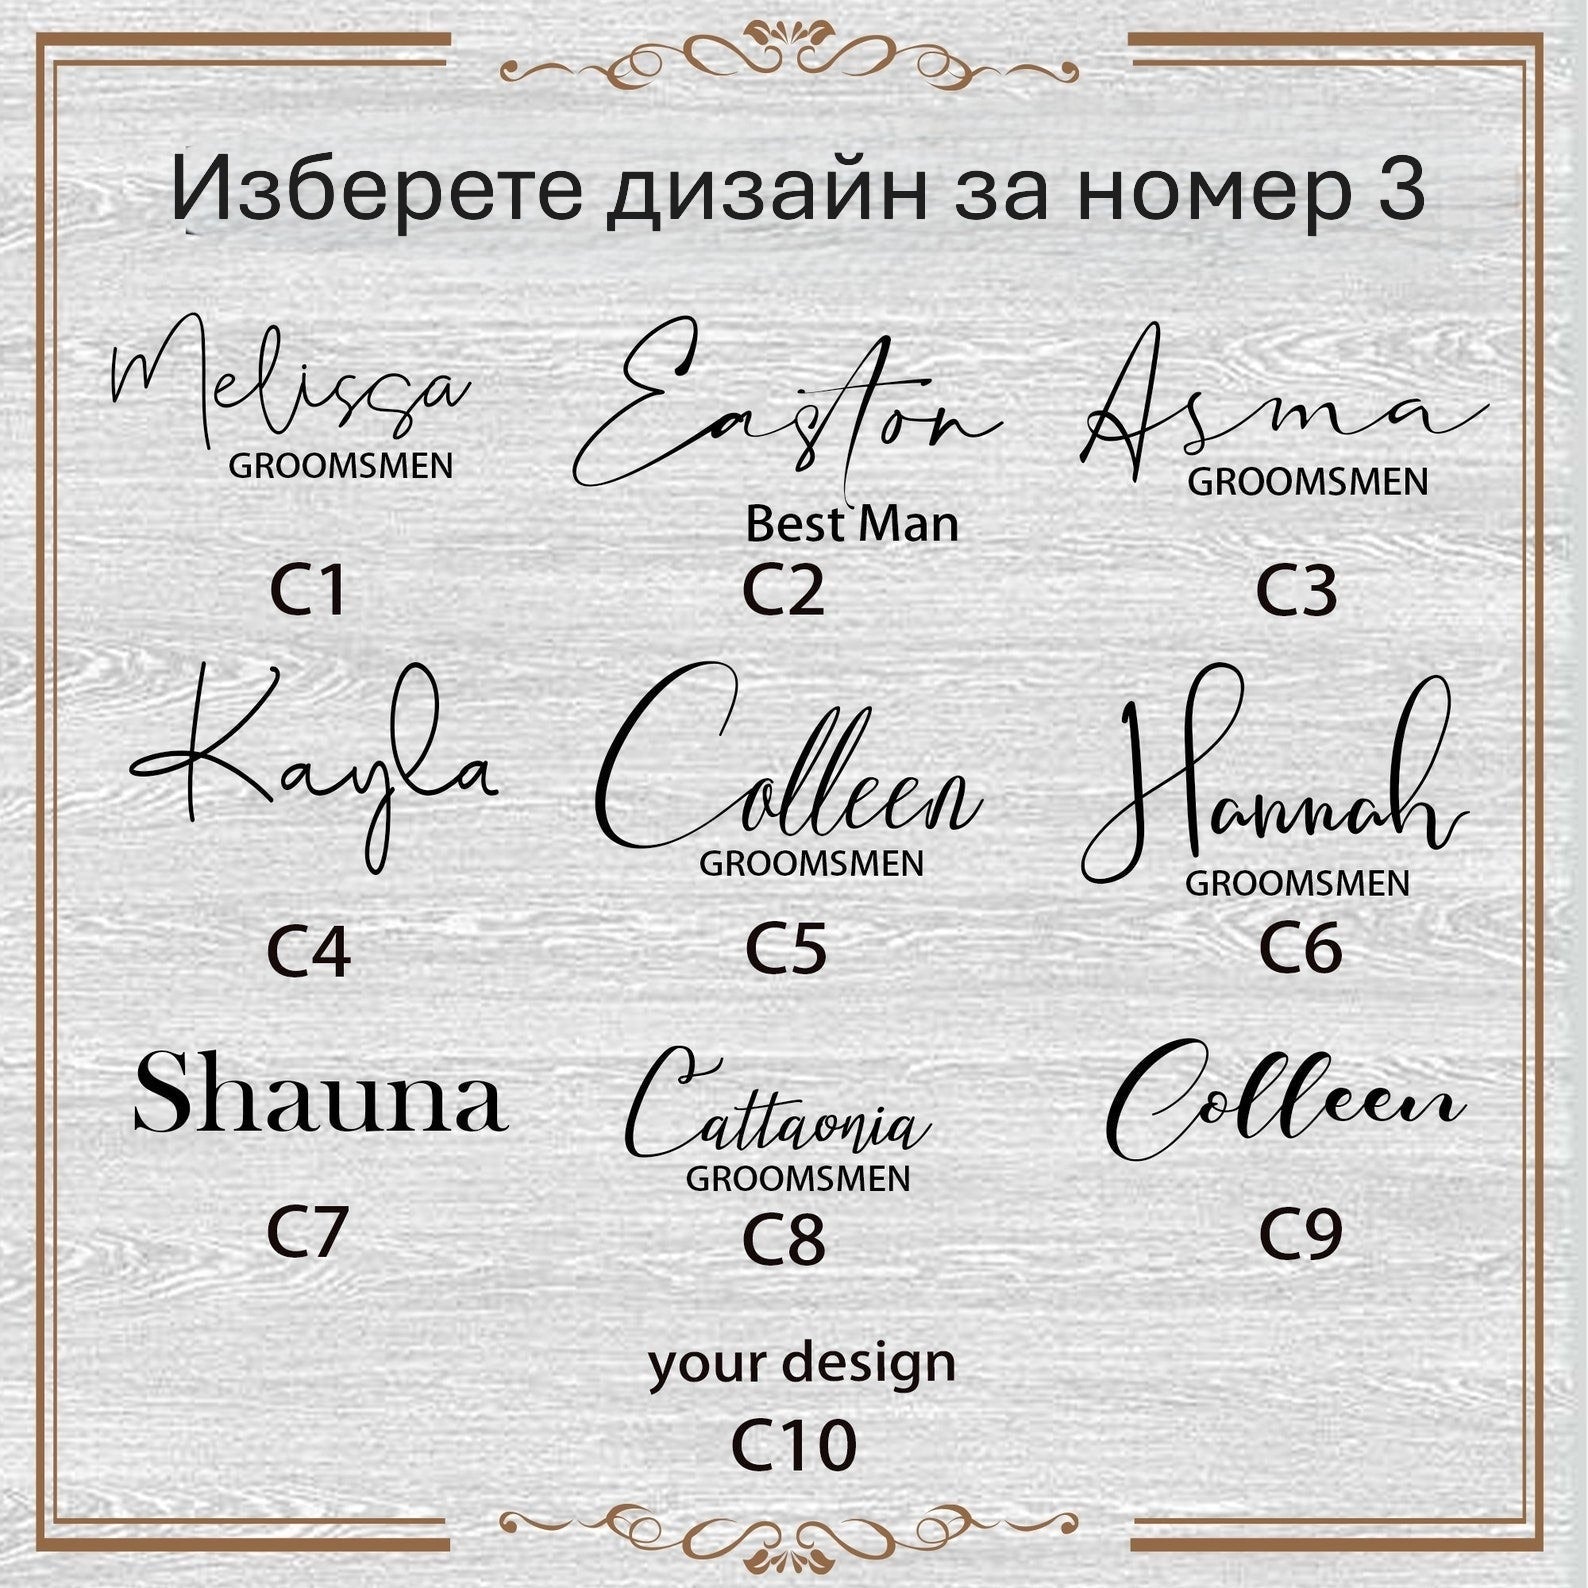 Изберете дизайн за номер 3
Melissa
GROOMSMEN
C1
Easton
Best Man
C2
Asma
GROOMSMEN
C3
Kayla
C4
Colleen
GROOMSMEN
C5
Hannah
GROOMSMEN
C6
Shauna
C7
Cattaonia
GROOMSMEN
C8
Colleen
C9
your design
C10